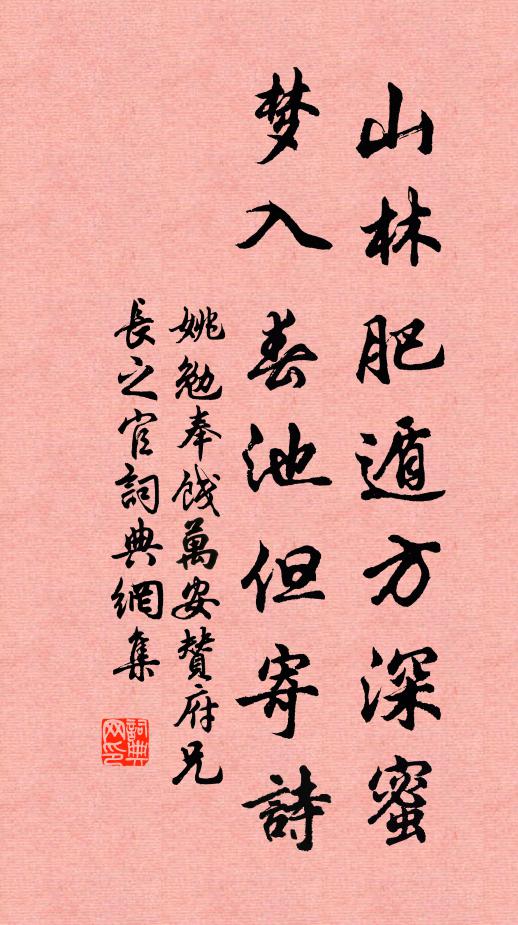 山林肥遁方深蜜
梦入春池但寄詩
姚勉奉餞萬安贊府兄
長之官詞典網集
詞典
网印